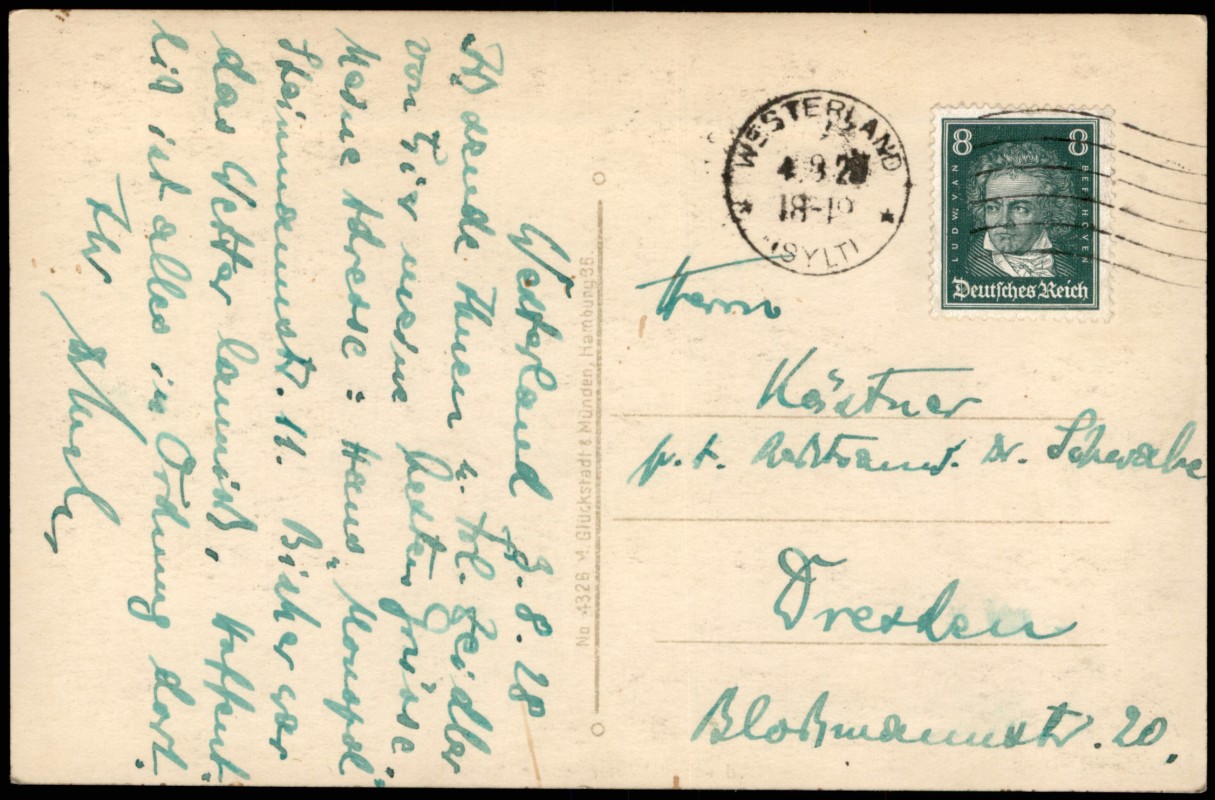 Westerland 3.8.28
Ich sende Ihnen u. Frl. Zeidler
von hier meine besten Grüsse.
Meine Adresse: Haus „Monopol"
Steinmannstr. 11. Bisher war
das Wetter launisch, hoffent
lich ist alles in Ordnung dort.
Ihr
No 4326 M. Glückstadt & Münden, Hamburg 36.
WESTERLAND
18-19
(SYLT)
8 8
LUDW. VAN BEETHOVEN
Deutsches Reich
Herrn
Kästner
p.t. Rechtsanw. Dr. Schwabe
Dresden
Blochmannstr. 20.